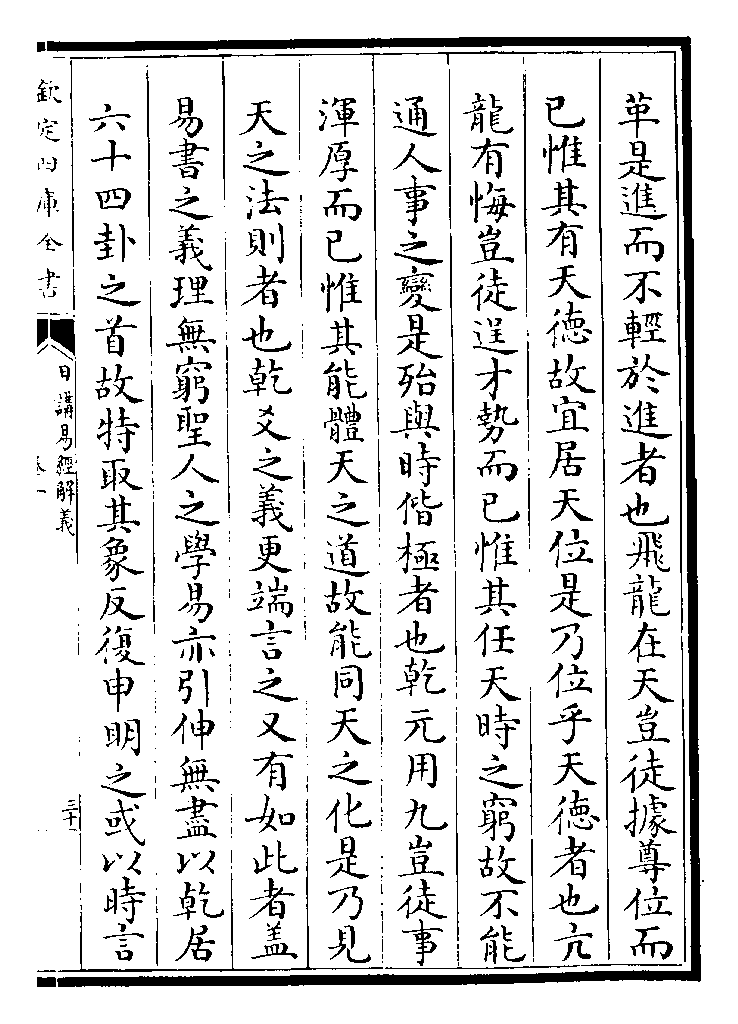 革是進而不輕於進者也飛龍在天豈徒據尊位而
已惟其有天德故宜居天位是乃位乎天德者也亢
龍有悔豈徒逞才勢而已惟其任天時之窮故不能
通人事之變是殆與時偕極者也乾元用九豈徒事
渾厚而已惟其能體天之道故能同天之化是乃見
天之法則者也乾爻之義更端言之又有如此者盖
易書之義理無窮聖人之學易亦引伸無盡以乾居
六十四卦之首故特取其象反復申明之或以時言
欽定四庫全書
日講易經解義
卷一
三十